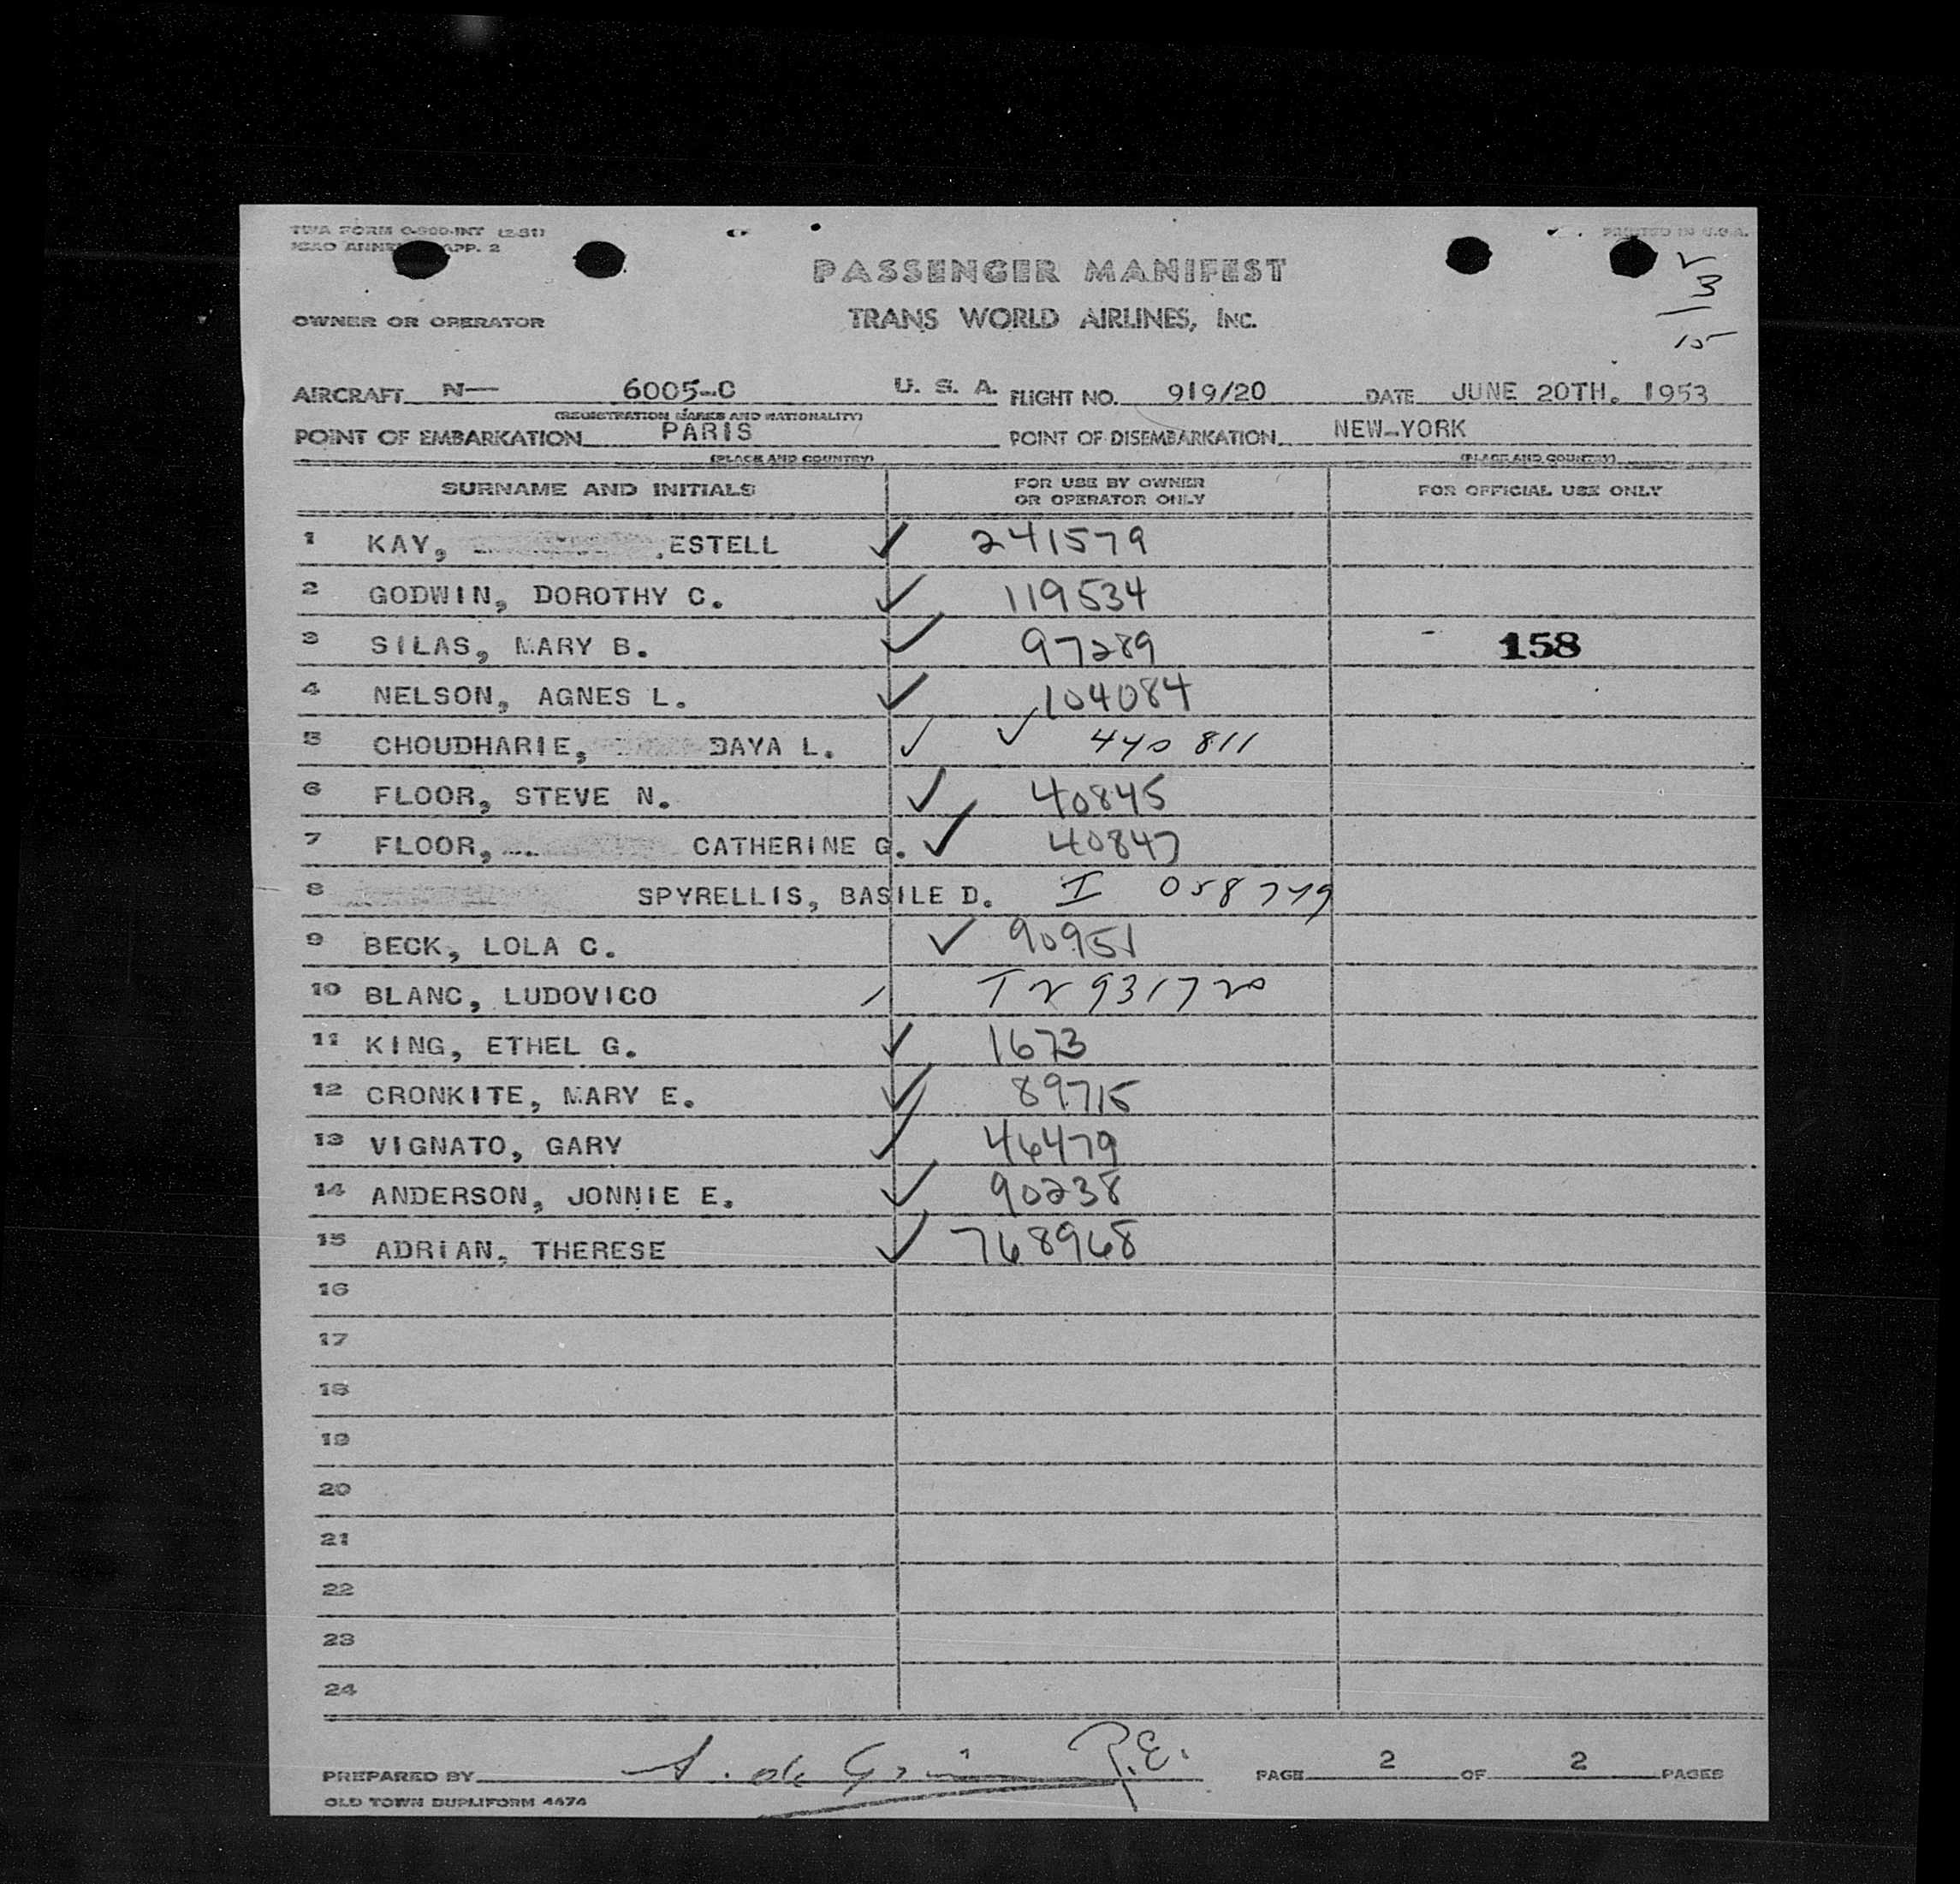 TWA FORM O-900-INT (2-51)
PRINTED IN U.S.A.
ICAO ANNEX APP. 2
PASSENGER MANIFEST
OWNER OR OPERATOR
TRANS WORLD AIRLINES, INC.
3
15
AIRCRAFT N— 6005-C U. S. A. FLIGHT NO. 919/20 DATE JUNE 20TH. 1953
(REGISTRATION MARKS AND NATIONALITY)
POINT OF EMBARKATION PARIS POINT OF DISEMBARKATION NEW-YORK
(PLACE AND COUNTRY) (PLACE AND COUNTRY)
SURNAME AND INITIALS FOR USE BY OWNER OR OPERATOR ONLY FOR OFFICIAL USE ONLY
1 KAY, ESTELL ✓ 241579
2 GODWIN, DOROTHY C. ✓ 119534
3 SILAS, MARY B. ✓ 97289 158
4 NELSON, AGNES L. ✓ 104084
5 CHOUDHARIE, DAYA L. ✓ ✓ 440 811
6 FLOOR, STEVE N. ✓ 40845
7 FLOOR, CATHERINE G. ✓ 40847
8 SPYRELLIS, BASILE D. I 058779
9 BECK, LOLA C. ✓ 90951
10 BLANC, LUDOVICO / 931720
11 KING, ETHEL G. ✓ 1673
12 CRONKITE, MARY E. ✓ 89715
13 VIGNATO, GARY ✓ 46479
14 ANDERSON, JONNIE E. ✓ 90238
15 ADRIAN, THERESE ✓ 768968
16
17
18
19
20
21
22
23
24
PREPARED BY PAGE 2 OF 2 PAGES
OLD TOWN DUPLIFORM 4474